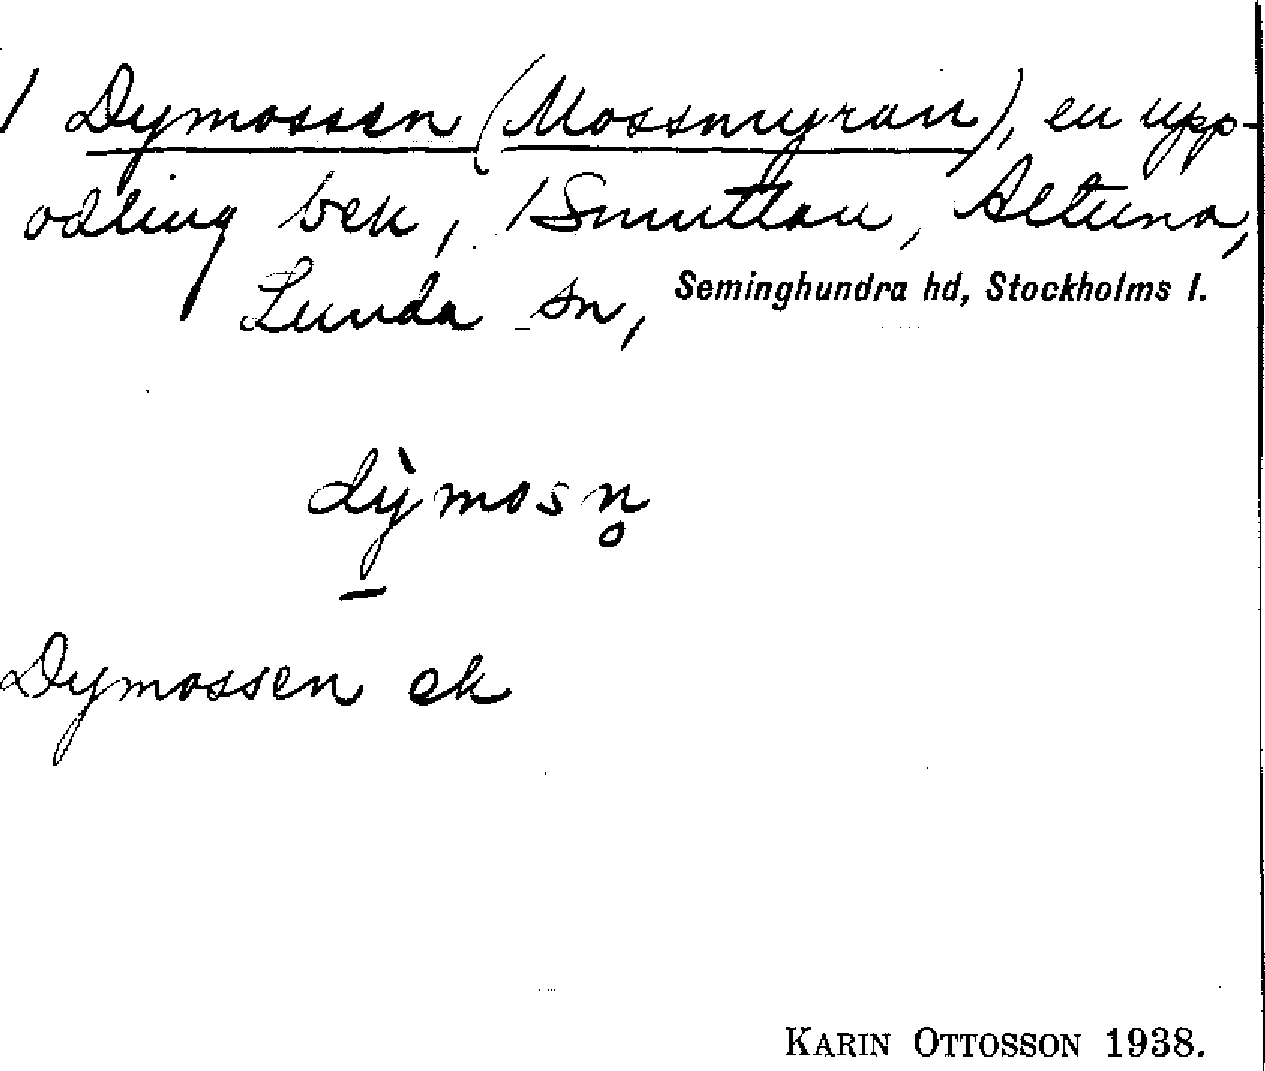 / Dymossen (Mossmyran), en upp-
odling bek, /Smuttan, Altuna,
Lunda sn, Seminghundra hd, Stockholms l.
dỳmosn̥
Dymossen ek
KARIN OTTOSSON 1938.